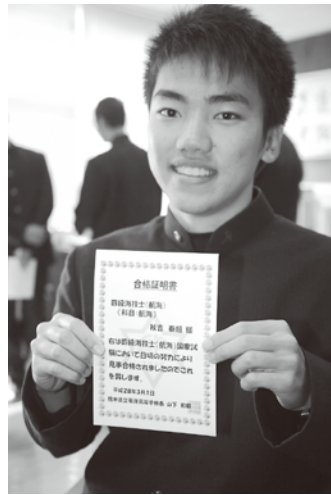 合格証明書
級海技士（航海）
（科目：航海）
殿
右は
級海技士（航海）国家試
験において日頃の努力により
見事合格されましたのでこれ
を賞します。
平成28年3月1日
山下